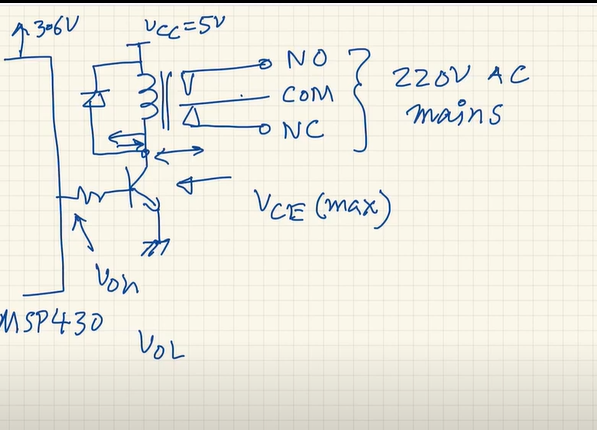 3.6V
VCC=5V
NO
COM
NC
220V AC
mains
VCE (max)
VOH
MSP430
VOL